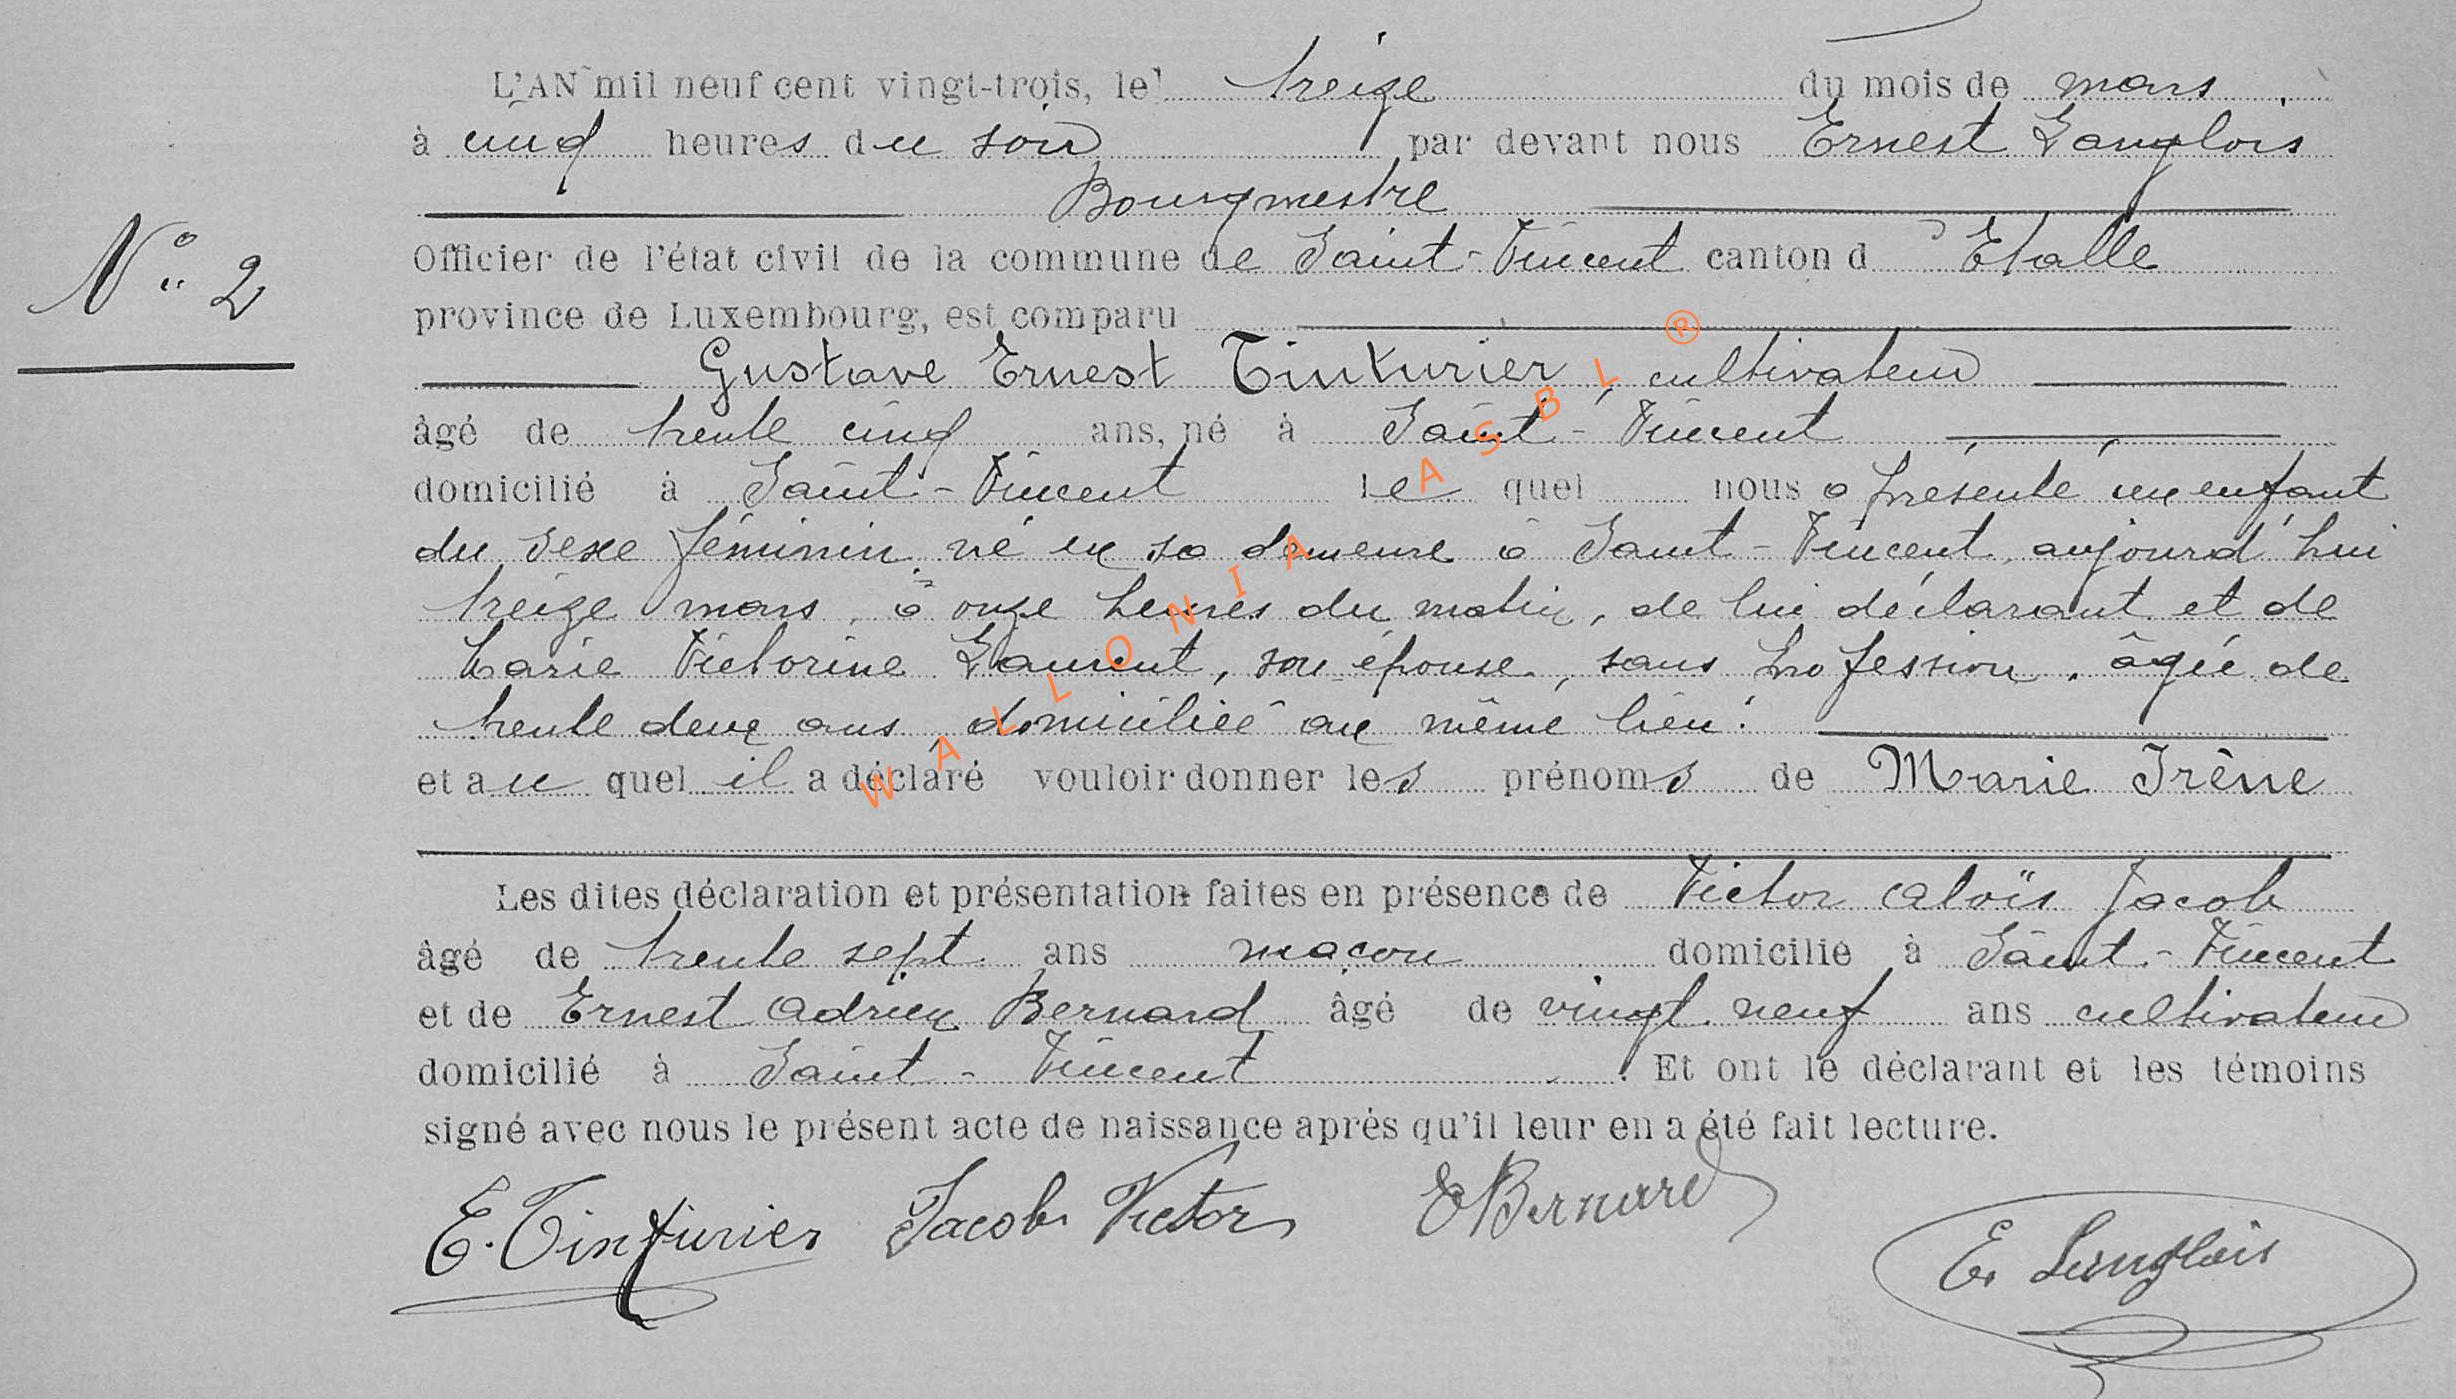 L'AN mil neuf cent vingt-trois, le treize du mois de mars
à cinq heures du soir, par devant nous Ernest Langlois
Bourgmestre
Officier de l'état civil de la commune de Saint-Vincent canton d'Etalle
N° 2
province de Luxembourg, est comparu
Gustave Ernest Tinturier, cultivateur
âgé de trente cinq ans, né à Saint-Vincent
domicilié à Saint-Vincent lequel nous a présenté un enfant
du sexe féminin né en sa demeure à Saint-Vincent, aujourd'hui
treize mars, à onze heures du matin, de lui déclarant et de
Marie Victorine Laurent, son épouse, sans profession, âgée de
trente deux ans, domiciliée au même lieu.
et au quel il a déclaré vouloir donner les prénoms de Marie Irène
Les dites déclaration et présentation faites en présence de Victor Aloïs Jacob
âgé de trente sept ans maçon domicilié à Saint-Vincent
et de Ernest Adrien Bernard âgé de vingt neuf ans cultivateur
domicilié à Saint-Vincent. Et ont le déclarant et les témoins
signé avec nous le présent acte de naissance après qu'il leur en a été fait lecture.
E. Tinturier Jacob Victor E Bernard
E. Langlois
WALLONIA ASBL ®